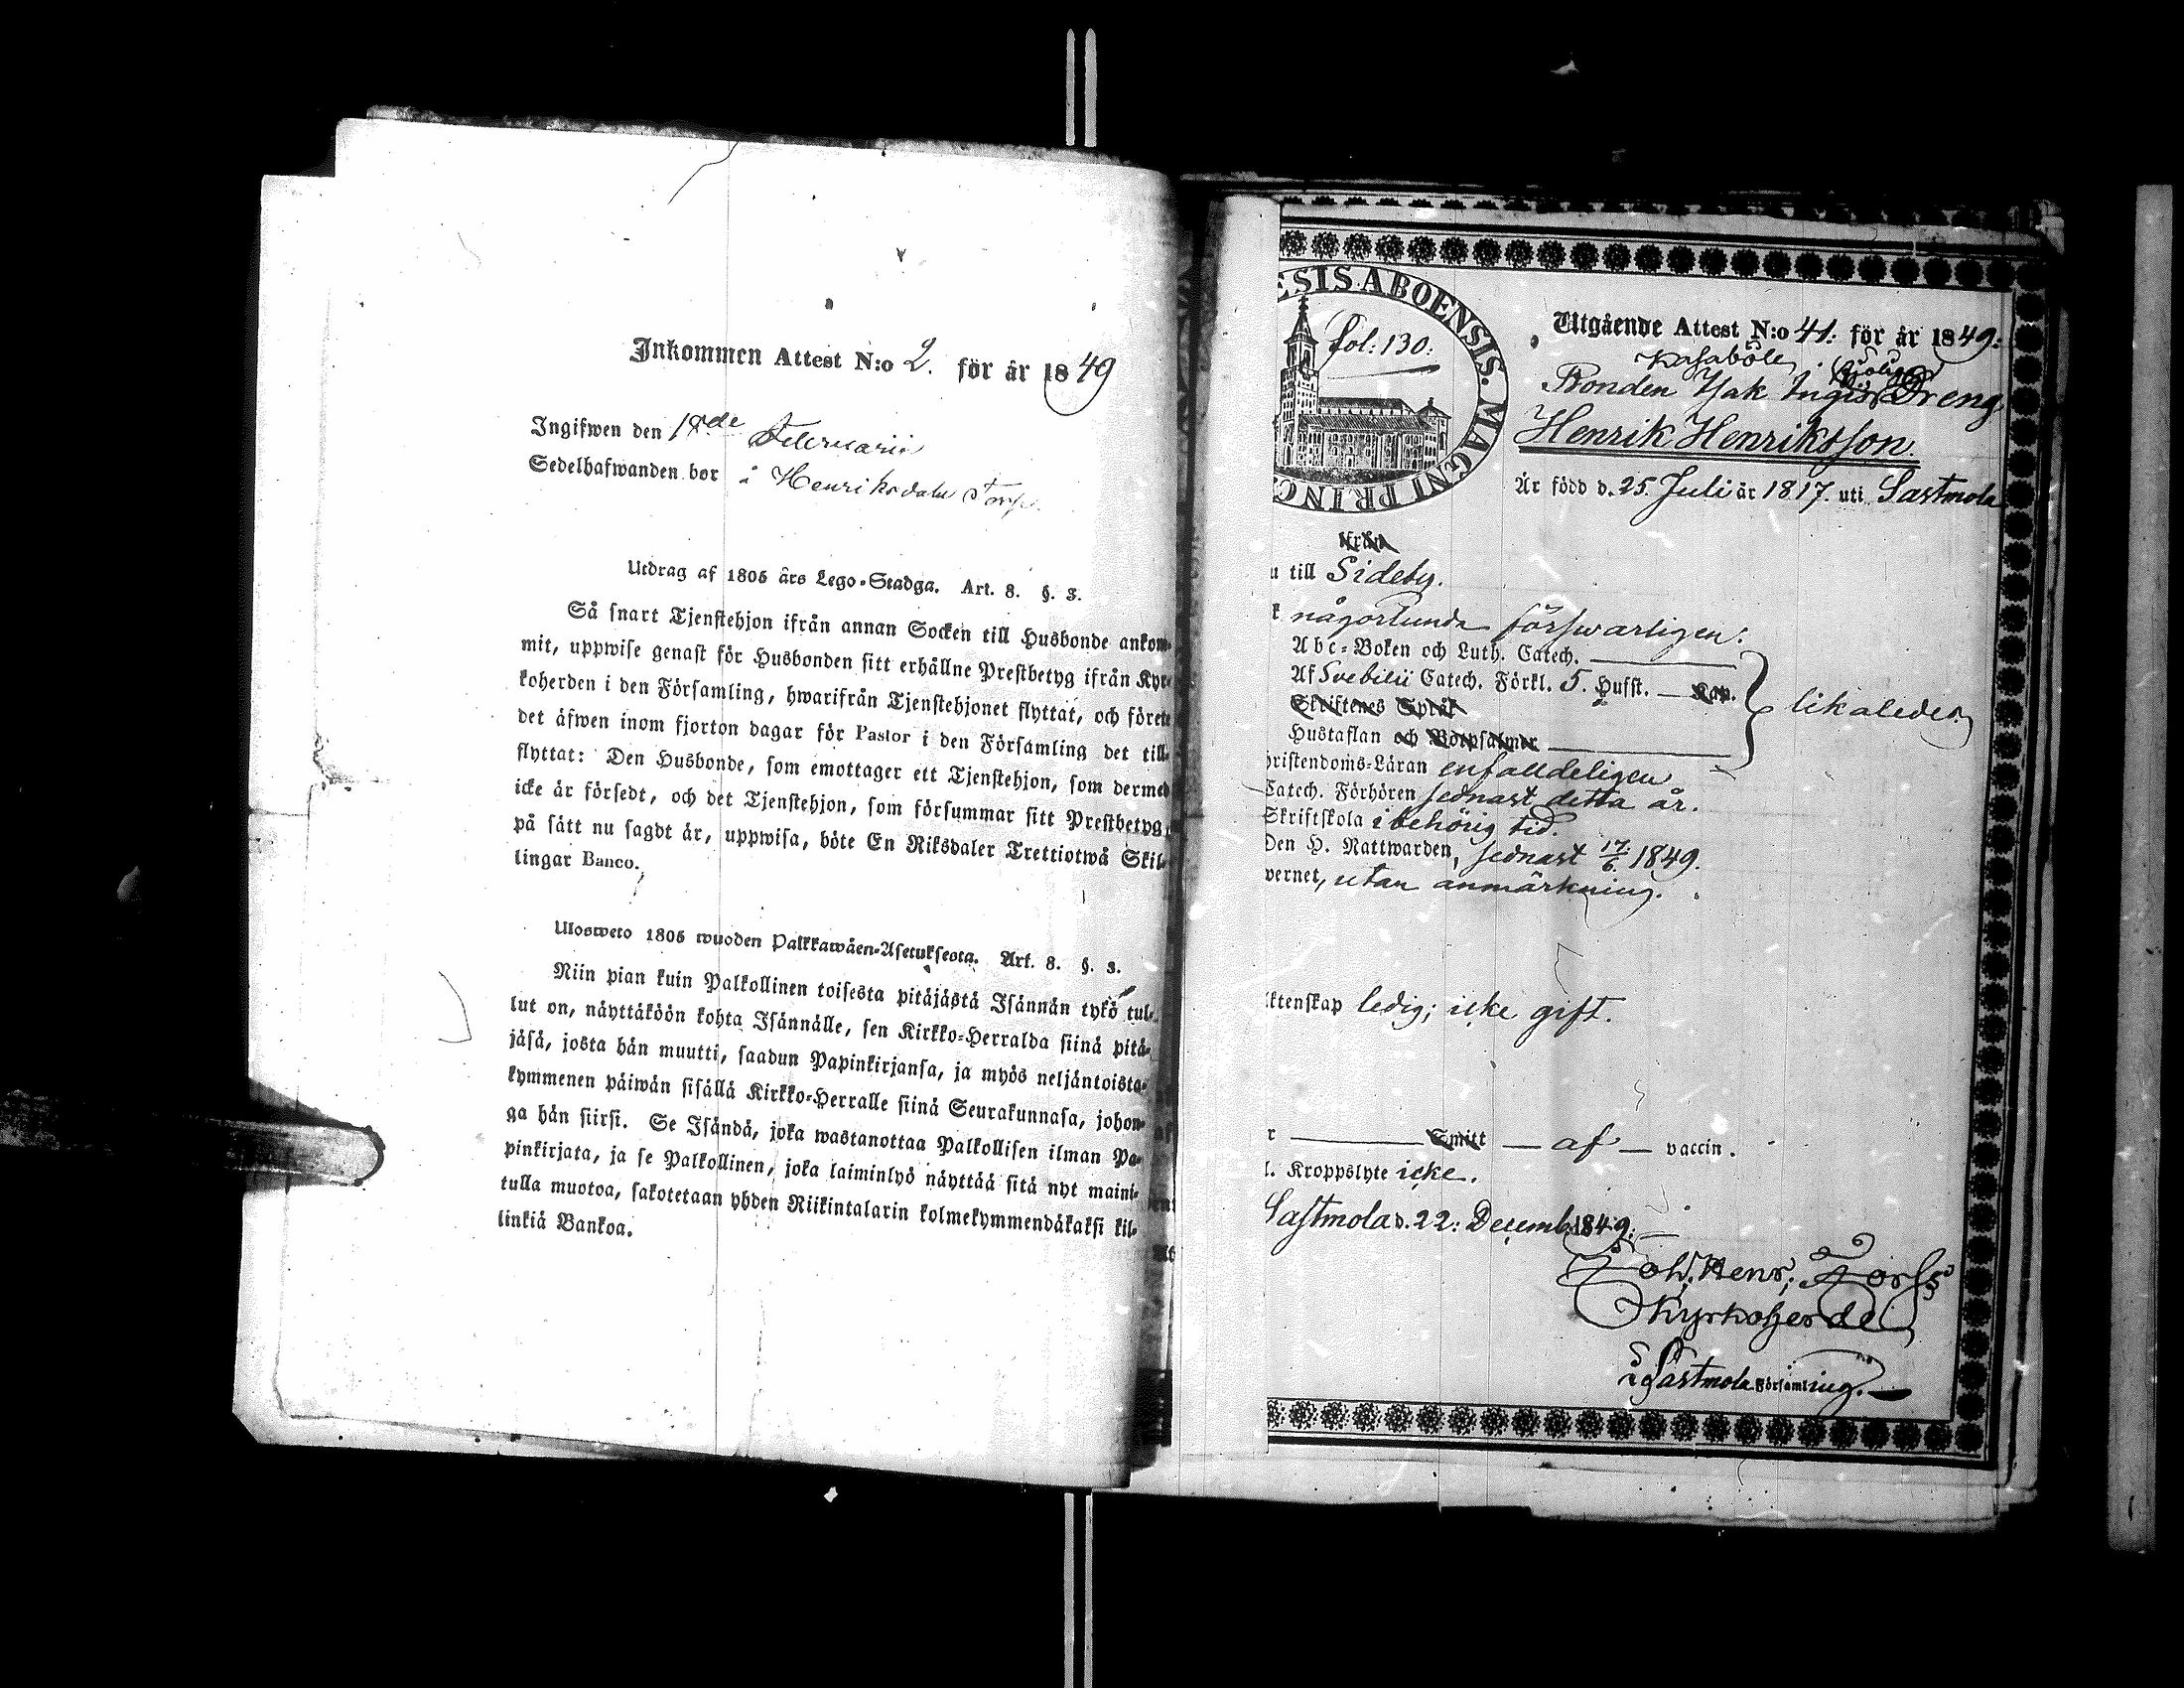 Inkommen Attest N:o 2. för år 1849
Ingifwen den 18de Februarii
Sedelhafwanden bor å Henriksdahl Torp.
Utdrag af 1805 års Lego-Stadga. Art. 8. §. 3.
Så snart Tjenstehjon ifrån annan Socken till Husbonde ankom-
mit, uppwise genast för Husbonden sitt erhållne Prestbetyg ifrån Kyr-
koherden i den Församling, hwarifrån Tjenstehjonet flyttat, och förete
det äfwen inom fjorton dagar för Pastor i den Församling det till-
flyttat: Den Husbonde, som emottager ett Tjenstehjon, som dermed
icke är försedt, och det Tjenstehjon, som försummar sitt Prestbetyg,
på sätt nu sagdt är, uppwisa, böte En Riksdaler Trettiotwå Skil-
lingar Banco.
Ulosweto 1805 wuoden Palkkawäen-Asetuksesta. Art. 8. §. 3.
Niin pian kuin Palkollinen toisesta pitäjästä Isännän tykö tul-
lut on, näyttäköön kohta Isännälle, sen Kirkko-Herralda siinä pitä-
jäsä, josta hän muutti, saadun Papinkirjansa, ja myös neljäntoista-
kymmenen päiwän sisällä Kirkko-Herralle siinä Seurakunnasa, johon-
ga hän siirsi. Se Isändä, joka wastanottaa Palkollisen ilman Pa-
pinkirjata, ja se Palkollinen, joka laiminlyö näyttää sitä nyt maini-
tulla muotoa, sakotetaan yhden Riikintalarin kolmekymmendäkaksi kil-
linkiä Bankoa.
ESIS ABOENSIS. MAGNI PRINC
fol: 130:
Utgående Attest N:o 41: för år 1849:
Kasaböle
Bonden Isak Dreng
Henrik Henriksson.
Är född d. 25. Juli år 1817. uti Sastmola
u till Sideby.
k någorlunda försvarligen:
Abc-Boken och Luth. Catech.
Af Svebilii Catech. Förkl. 5. Hufst. — Kap.
Skriftenes Språk
likaledes
Hustaflan och Botpsalmer
ristendoms-Läran enfalldeligen
Catech. Förhören sednast detta år.
Skriftskola i behörig tid.
Den H. Nattwarden, sednast 17/6. 1849.
vernet, utan anmärkning.
ktenskap ledig; icke gift.
r — Smitt — af — vaccin.
l. Kroppslyte icke.
Sastmola d. 22: Decemb. 1849:
Joh. Henr: Forss
Kyrkoherde
i Sastmola Församling.